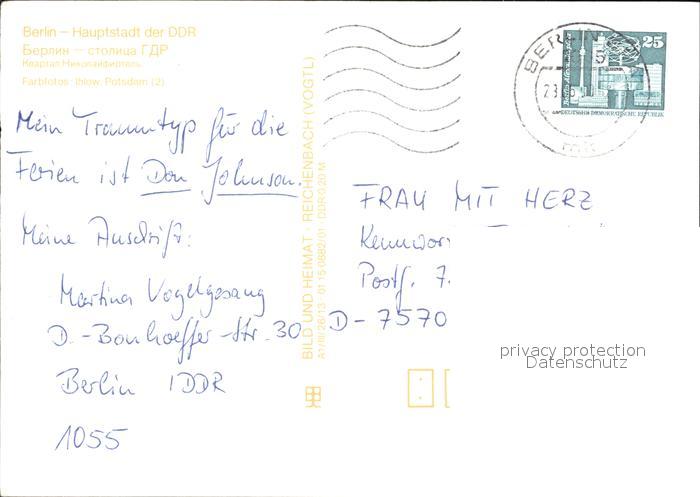 Berlin – Hauptstadt der DDR
Берлин – столица ГДР
Квартал Николайфиртель
Farbfotos: Ihlow, Potsdam (2)
Mein Traumtyp für die
Ferien ist Don Johnson.
Meine Anschrift:
Martina Vogelgesang
D.-Bonhoeffer-Str. 30
Berlin DDR
1055
BILD UND HEIMAT · REICHENBACH (VOGTL)
A1/III/26/13 01 15 0882/01 DDR 0,20 M
BERLIN
25
DEUTSCHE DEMOKRATISCHE REPUBLIK
FRAU MIT HERZ
Kennwor
Postf. 7.
D-7570
privacy protection
Datenschutz